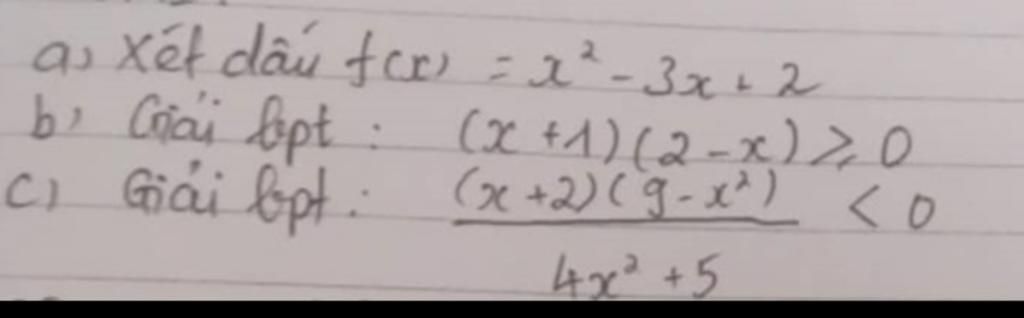 a) Xét dấu f(x) = x² - 3x + 2
b) Giải bpt : (x + 1)(2 - x) ≥ 0
c) Giải bpt : (x + 2)(9 - x²) / 4x² + 5 < 0